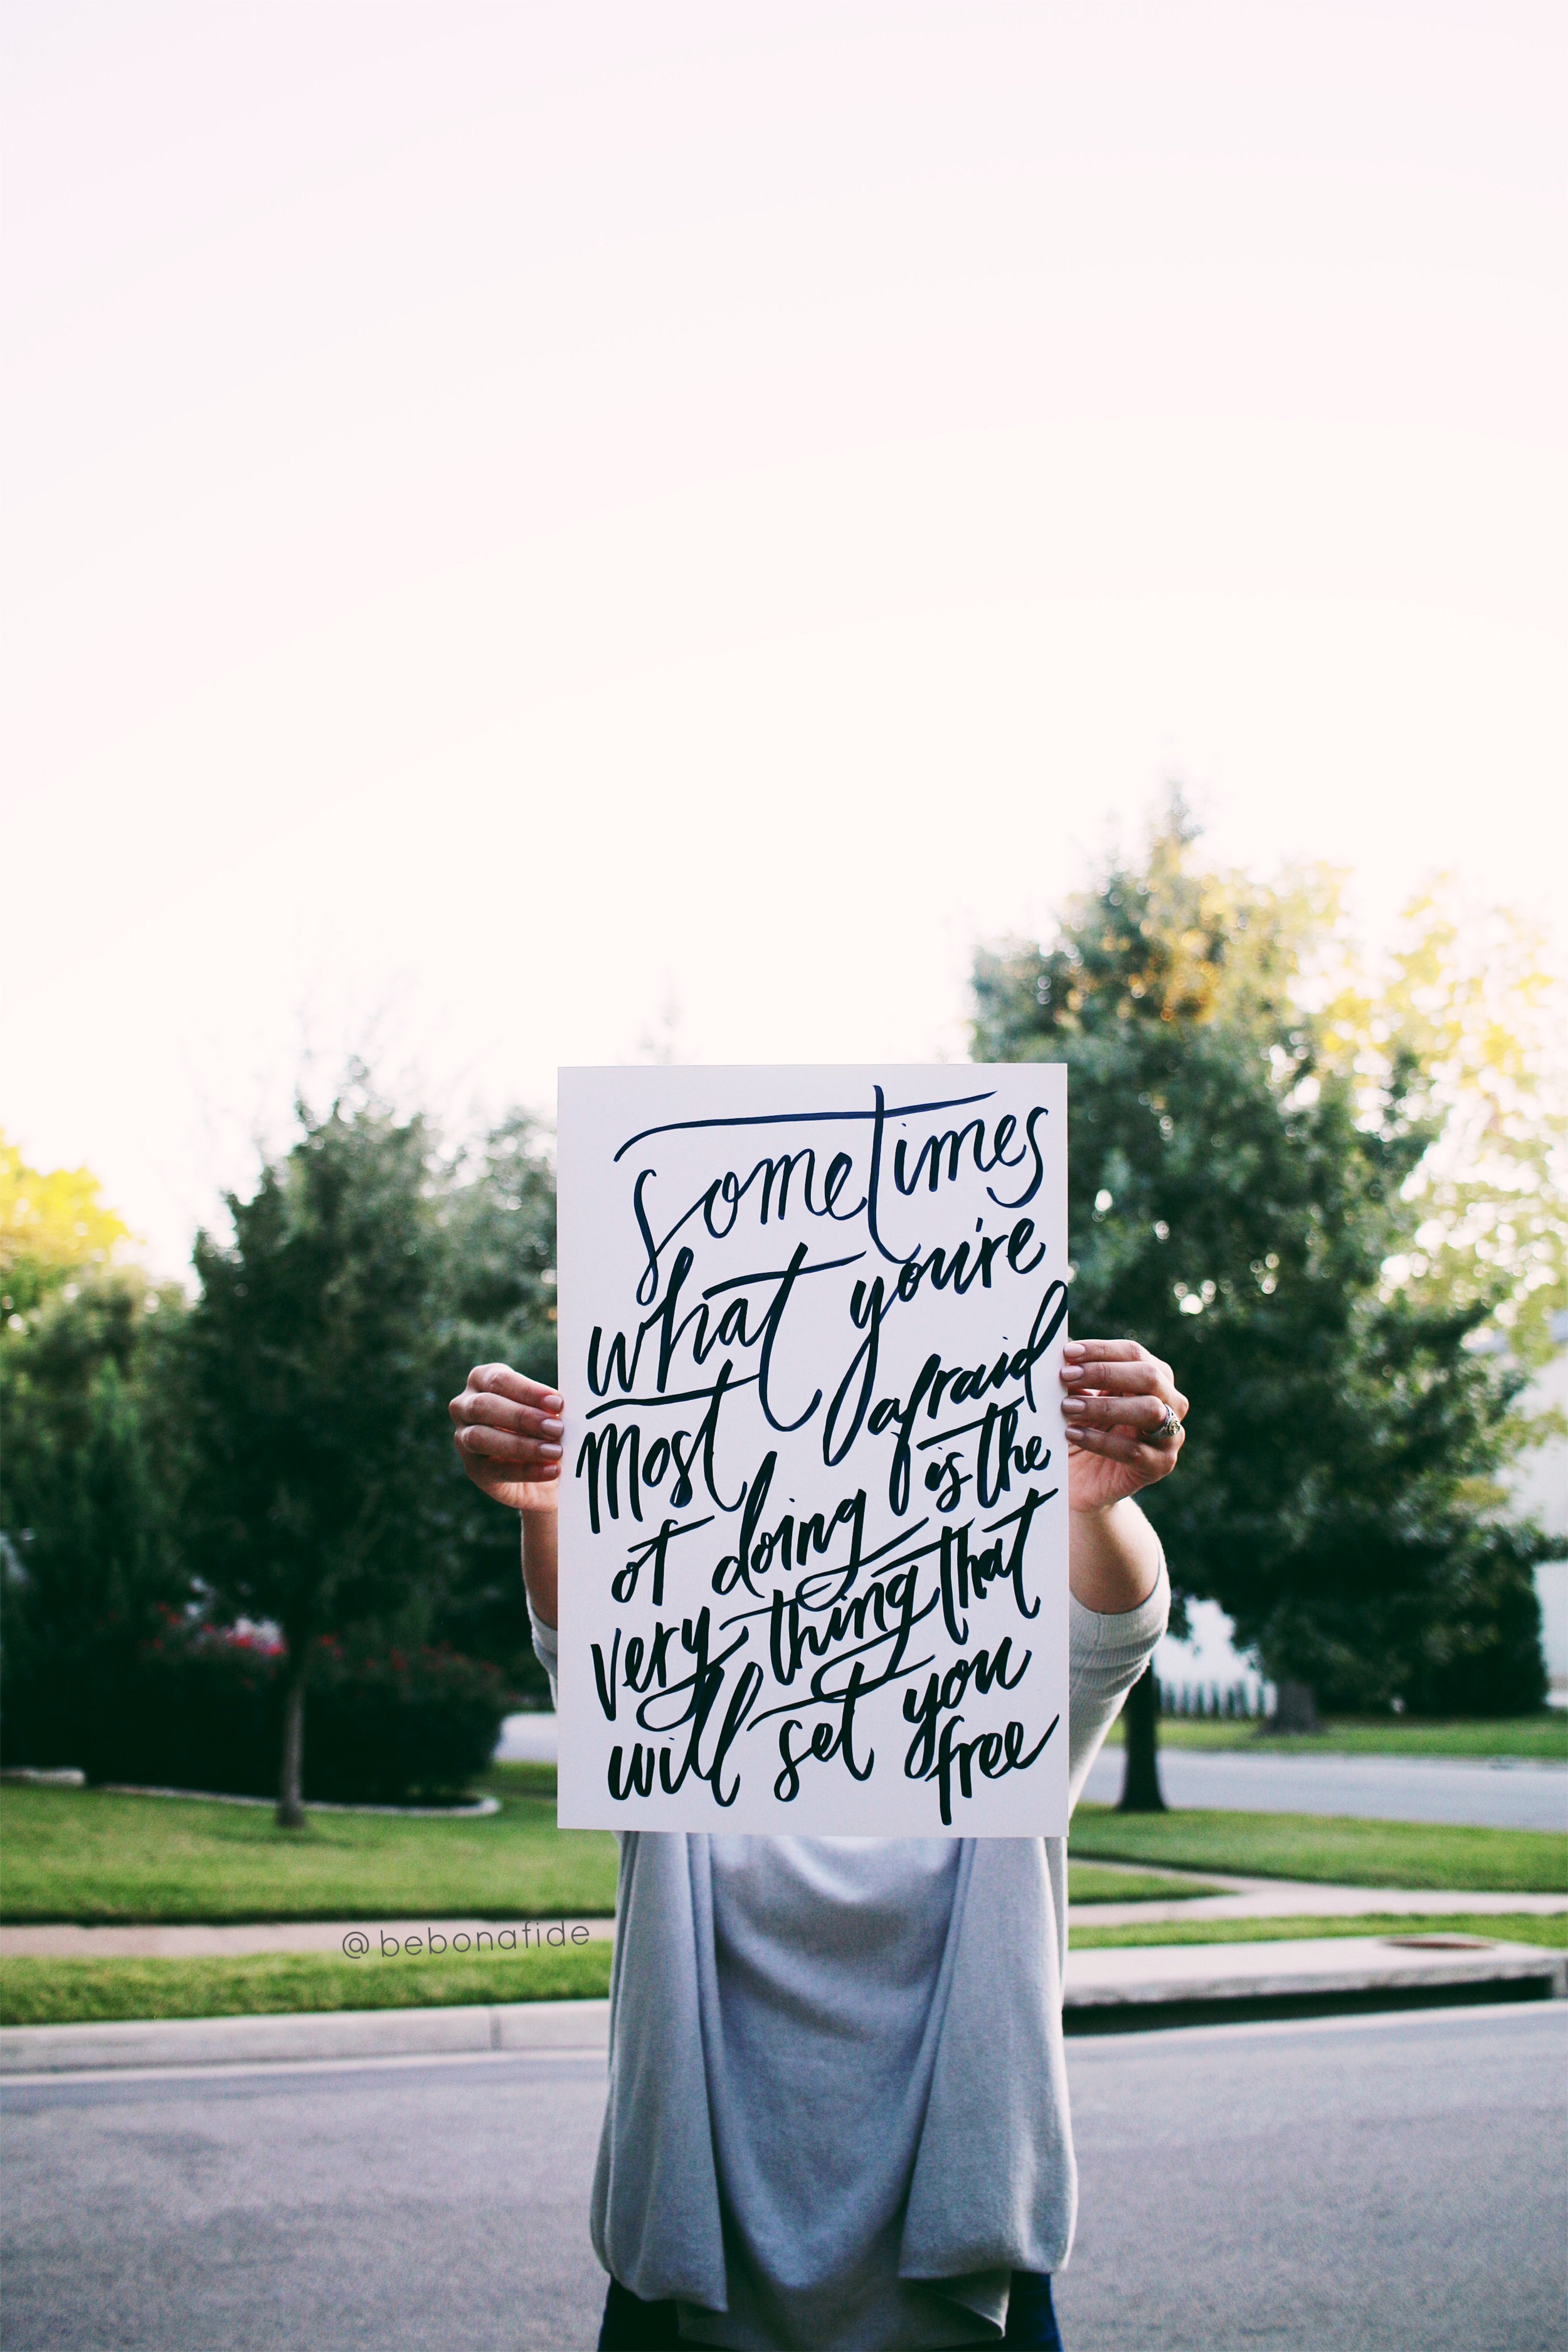 sometimes
what you're
most afraid
of doing is the
very thing that
will set you
free
@bebonafide